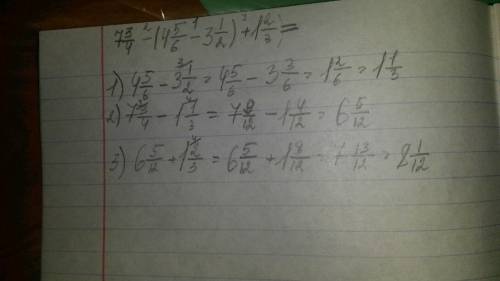 7 3/4 - (4 5/6 - 3 1/2) + 1 2/3 =
1) 4 5/6 - 3 1/2 = 4 5/6 - 3 3/6 = 1 2/6 = 1 1/3
2) 7 3/4 - 1 1/3 = 7 9/12 - 1 4/12 = 6 5/12
3) 6 5/12 + 1 2/3 = 6 5/12 + 1 8/12 = 7 13/12 = 8 1/12